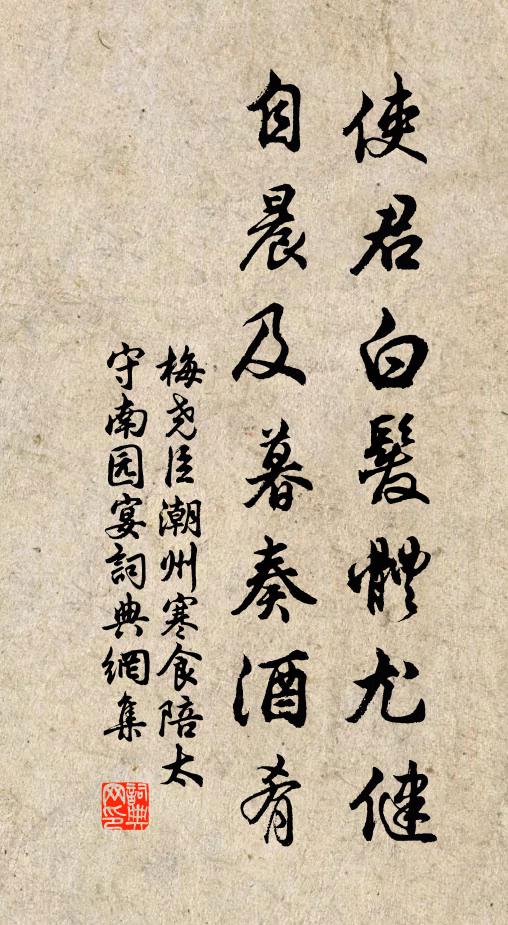 使君白髮體尤健
自晨及暮奏酒肴
梅尧臣潮州寒食陪太
守南园宴詞典網集
詞典网印